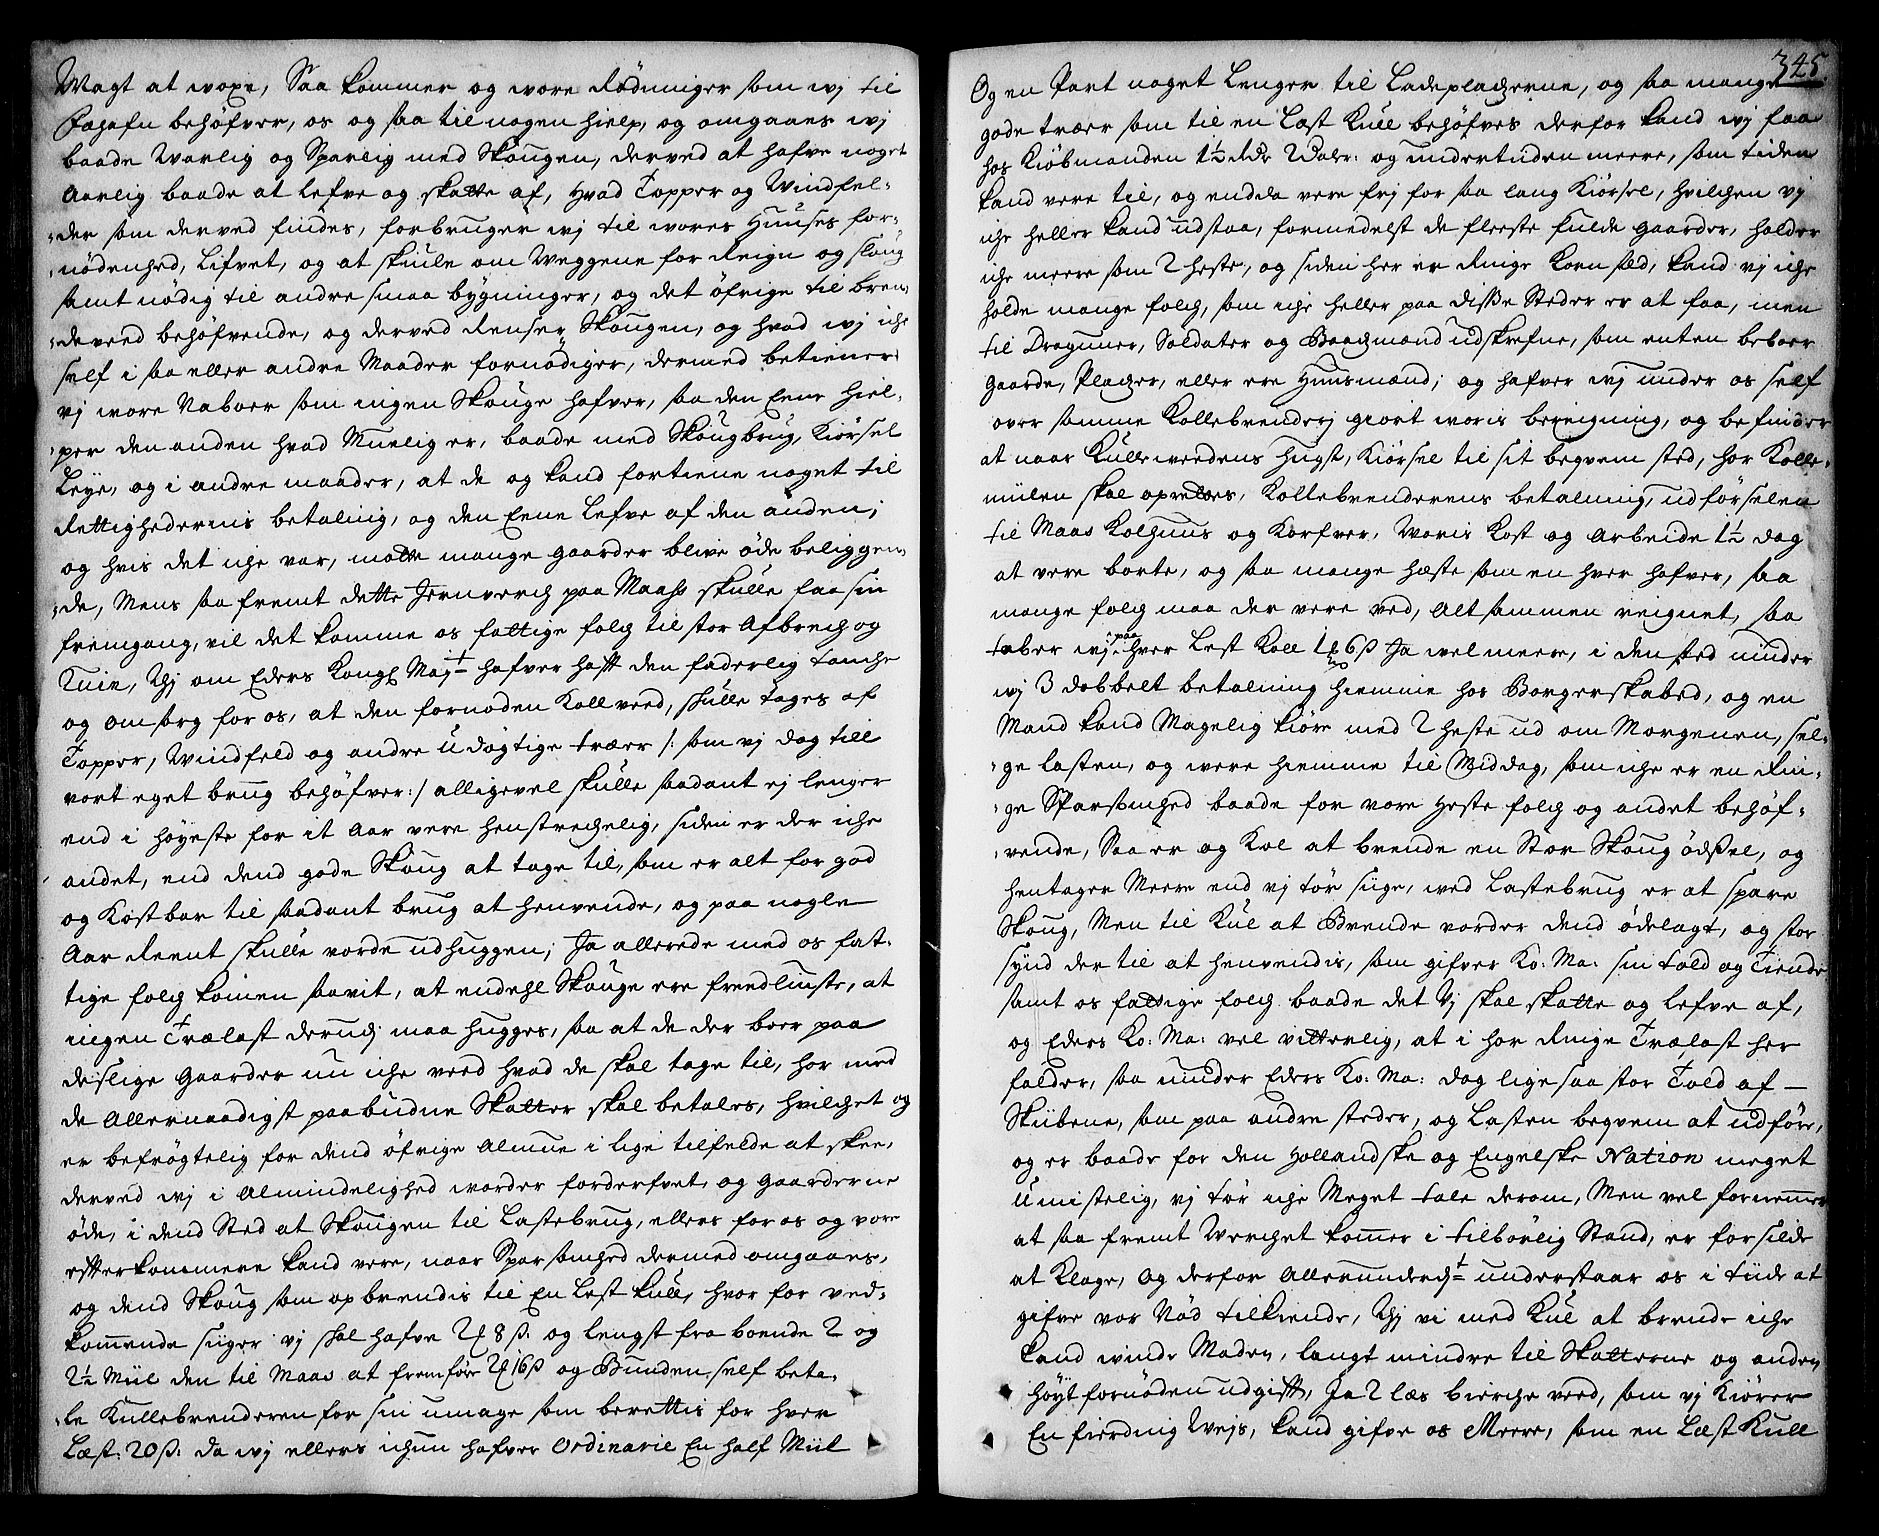 Wagt at woxe, Saa kommer og wore Rødninger som wj til
Jahafn behøfver, os og saa til nogen hielp, og omgaaes wj
baade Warlig og Sparlig med Skougen, derved at hafve noget
Aarlig baade at lefve og skatte af, Hvad Topper og Windfel-
der som derved findes, forbruger wj til wores Huuses for-
nødenhed, Lifvet, og at skiule om Weggene for Reign og sloug
samt nödig til andre smaa bygninger, og det öfrige til bren-
deveed behöfvende, og derved Renser Skougen, og hvad wj iche
self i saa eller andre Maader fornödiger, dermed betiener
vj wore Naboer som ingen Skouge hafver, saa den Eene hiel-
per den anden hvad Muelig er, baade med Skougbrug, Kiörsel
Leye, og i andre maader, at de og kand fortiene noget til
Rettighedernis betaling, og den Eene Lefve af den anden;
og hvis det iche var, motte mange gaarder blive öde beliggen-
de, Mens saa fremt dette Jernverch paa Maass skulle faa sin
fremgang, vil det komme os fattige folch til stor Afbrech og
Ruin, Thj om Eders Kongl Majt hafver hafft den faderlig tanche
og omsorg for os, at den fornöden Kollveed, skulle tages af
Topper, Windfeld og andre Udögtige træer /: som vj dog till
vort eget brug behöfver:/ alligevel skulle saadant ej lenger
end i höyeste for it Aar vere henstrechelig, siden er der iche
andet, end dend gode Skoug at tage til, som er alt for god
og Kostbar til saadant brug at henvende, og paa nogle
Aar Reent skulle vorde udhuggen; Ja allerede med os fat-
tige folch komen saavit, at endehl Skouge ere freedliuste, at
ingen Trælast derudj maa hugges, saa at de der boer paa
deslige gaarder nu iche veed hvad de skal tage til, hor med
de Allernaadigst paabudne Skatter skal betales, hvilchet og
er befrögtelig for dend öfrige Almue i lige tilfelde at skee,
derved wj i Almindelighed worder forderfvet, og gaarderne
öde, i dend Sted at Skougen til Lastebrug, ellers for os og vore
effterkommere kand vere, naar Sparsomhed dermed omgaaes,
og dend Skoug som opbrendis til En Lest kull, hvor for ved-
kommende siiger vj skal hafve 2 8 ß: og lengst fra boende 2 og
2½ Miil den til Maas at fremföre 2 16 ß og Bunden self beta-
le Kullebrenderen for sin umage som berettis for hver
Læst: 20 ß: da wj ellers ichun hafver Ordinarie En half Miil
345.
Og en Part noget Lenger til Ladepladzerne, og saa mange
gode træer som til en Læst Kull behöfves derfor kand wj faae
hos Kiöbmanden 1½ Rdr 2 Dalr: og undertiden meere, som tiden
kand vere til, og endda vere frj for saa lang Kiörsel, hvilchen vj
iche heller kand udstaa, formedelst de fleeste fulde gaarder, holder
iche meere som 2 heste, og siden her er Ringe Korn sæd, kand vj iche
holde mange folch, som iche heller paa disse Steder er at faa, men
til Dragouner, Soldater og Baadzmænd udskrefne, som enten beboer
gaarde, Pladzer, eller ere Huusmænd; og hafver wj under os self
over samme Kollebrenderj giort woris bereigning, og befinder
at naar Kulleweedens hugst, Kiörsel til sit beqvem sted, hor Kolle-
miilen skal opreises, Kollebrenderens betalning, udförselen
til Maas Kolhuus og Korfver, Woris Kost og Arbeide 1½ dag
at vere borte, og saa mange hæste som en hver hafver, saa
mange folch maa der vere ved, Alt sammen reignet, saa
taber wj paa hver Lest Koll 1 6 ß Ja wel meere, i den sted nuder
wj 3 dobbelt betalning hiemme hos Borgerskabet, og en
Mand kand Magelig kiöre med 2 heste ud om Morgenen, sel-
ge lasten, og were hiemme til Middag, som iche er en Rin-
ge Sparsomhed baade for vore Heste folch og andet behöf-
vende, Saa er og Kol at brende en Stor Skoug ödßel, og
hentager Meere end vj tör siige, wed Lastebrug er at spare
Skoug, Men til Kul at Brende vorder dend ödelagt, og stor
synd der til at henvendis, som gifver Ko: Ma: sin told og Tiende
samt os fattige folch baade det Vj skal skatte og lefve af,
og Eders Ko: Ma: vel vitterlig, at i hor Ringe Trælast her
falder, saa nuder Eders Ko: Ma: dog lige saa stor Told af
Skibene, som paa andre steder, og Lasten beqvem at udföre,
og er baade for den Hollandske og Engelske Nation meget
Umistelig, vj tör iche Meget tale derom, Men vel fornemmer
at saa fremt Werchet kommer i tilbörlig Stand, er forsilde
at Klage, Og derfor Allerunderdt understaar os i tiide at
gifve vor Nöd tilkiende, Thj vi med Kul at brende iche
kand winde Maden, langt mindre til Skatterne og anden
höyt fornöden udgifft, Ja 2 læs bierche veed, som vj Kiörer
En fierdnig Weys, kand gifve os Meere, som en Læst Kull